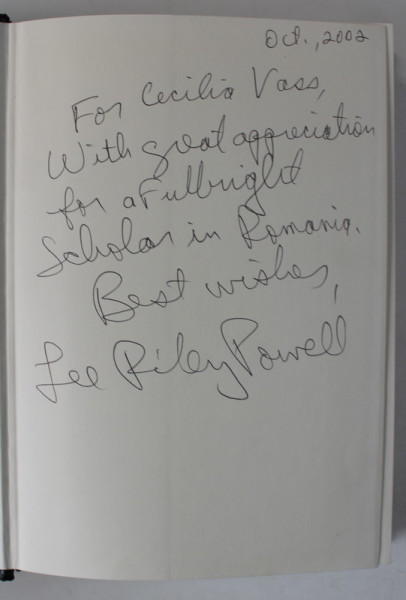 Oct., 2002
For Cecilia Vass,
With great appreciation
for a Fulbright
Scholar in Romania.
Best wishes,
Lee Riley Powell